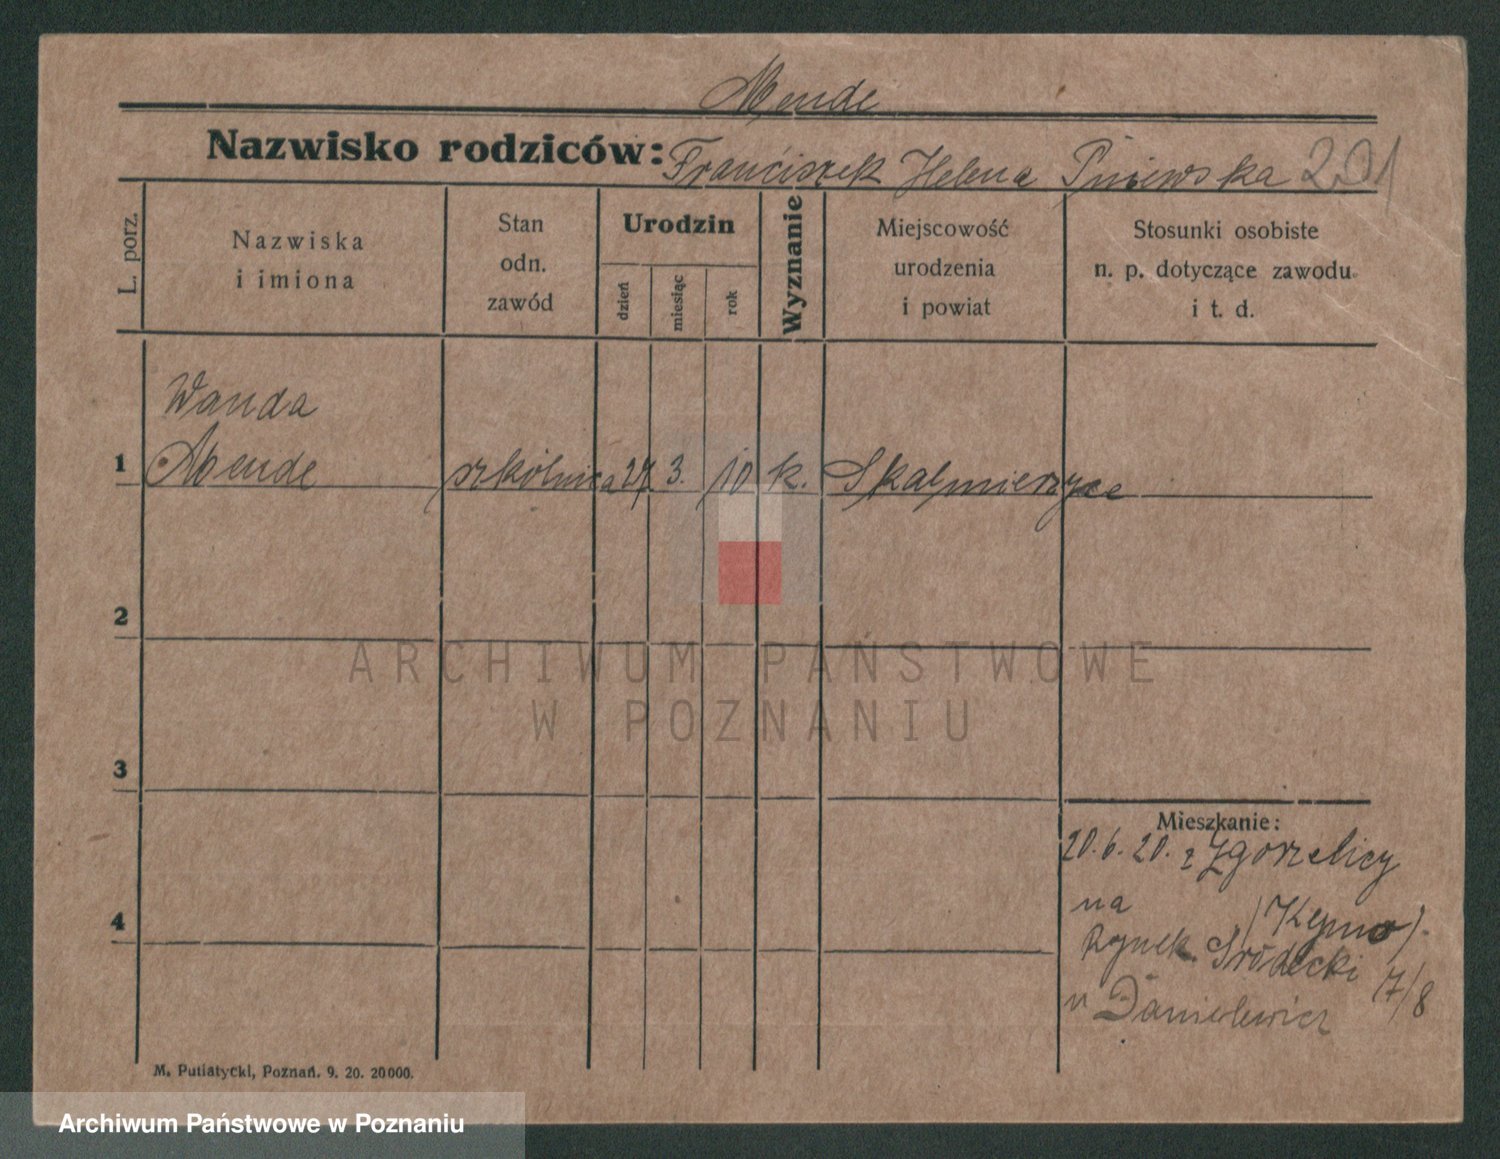 Mende
Nazwisko rodziców: Franciszek Helena Pniewska 201
L. porz.
Nazwiska
i imiona
Stan
odn.
zawód
Urodzin
dzień
miesiąc
rok
Wyznanie
Miejscowość
urodzenia
i powiat
Stosunki osobiste
n. p. dotyczące zawodu
i t. d.
Wanda
1 Mende szkólnica 27. 3. 10 k. Skalmierzyce
2
ARCHIWUM PAŃSTWOWE
W POZNANIU
3
Mieszkanie:
20.6.20. z Zgorzelicy
na (Kempno).
4
Rynek Śródecki 17/8
u Danielewicz
M. Putiatycki, Poznań. 9. 20. 20000.
Archiwum Państwowe w Poznaniu